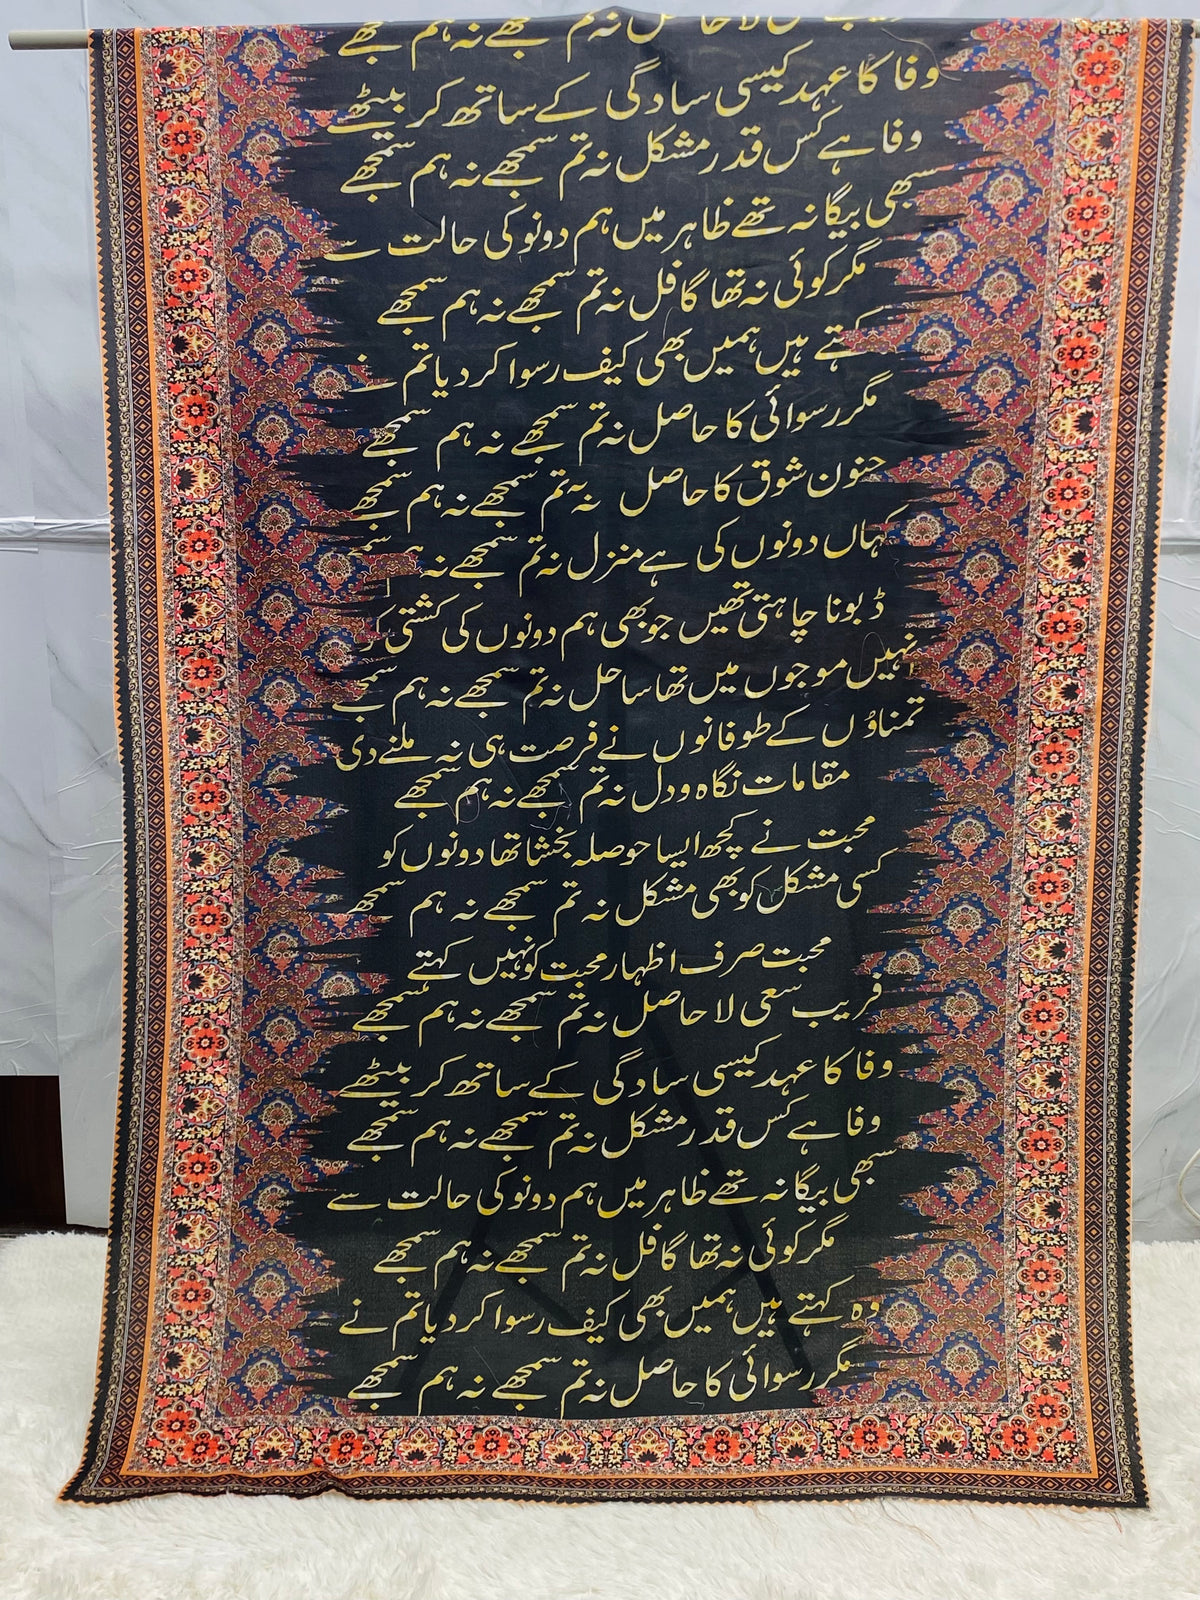 لا حاصل نہ تم سمجھے نہ ہم سمجھے
وفا کا عہد کیسی سادگی کے ساتھ کر بیٹھے
وفا ہے کس قدر مشکل نہ تم سمجھے نہ ہم سمجھے
سبھی بیگانہ تھے ظاہر میں ہم دونو کی حالت سے
مگر کوئی نہ تھا گافل نہ تم سمجھے نہ ہم سمجھے
کہتے ہیں ہمیں بھی کیف رسوا کر دیا تم نے
مگر رسوائی کا حاصل نہ تم سمجھے نہ ہم سمجھے
جنون شوق کا حاصل نہ تم سمجھے نہ ہم سمجھے
کہاں دونوں کی ہے منزل نہ تم سمجھے نہ ہم سمجھے
ڈبونا چاہتی تھیں جو بھی ہم دونوں کی کشتی کو
نہیں موجوں میں تھا ساحل نہ تم سمجھے نہ ہم سمجھے
تمناؤں کے طوفانوں نے فرصت ہی نہ ملنے دی
مقامات نگاہ و دل نہ تم سمجھے نہ ہم سمجھے
محبت نے کچھ ایسا حوصلہ بخشا تھا دونوں کو
کسی مشکل کو بھی مشکل نہ تم سمجھے نہ ہم سمجھے
محبت صرف اظہار محبت کو نہیں کہتے
فریب سعی لا حاصل نہ تم سمجھے نہ ہم سمجھے
وفا کا عہد کیسی سادگی کے ساتھ کر بیٹھے
وفا ہے کس قدر مشکل نہ تم سمجھے نہ ہم سمجھے
سبھی بیگانہ تھے ظاہر میں ہم دونو کی حالت سے
مگر کوئی نہ تھا گافل نہ تم سمجھے نہ ہم سمجھے
وہ کہتے ہیں ہمیں بھی کیف رسوا کر دیا تم نے
مگر رسوائی کا حاصل نہ تم سمجھے نہ ہم سمجھے